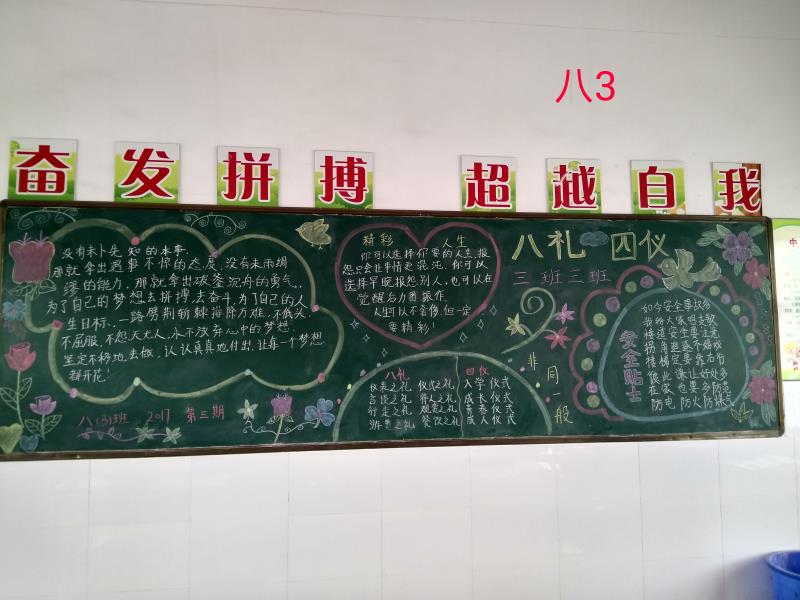 八3
奋发拼搏 超越自我
没有未卜先知的本事,
那就拿出遇事不惊的态度,没有未雨绸
缪的能力,那就拿出破釜沉舟的勇气,
为了自己的梦想去拼搏去奋斗,为了自己的人
生目标,一路劈荆斩棘排除万难,不低头
不屈服,不怨天尤人,永不放弃心中的梦想.
坚定不移地去做,认认真真地付出,让每一个梦想
都开花!
八(3)班 2017 第三期
精彩 人生
你可以选择你要的人生,抱
怨只会让事情更混沌.你可以
选择早晚抱怨别人,也可以在
觉醒后力图振作.
人生可以不奢像,但一定
要精彩!
八礼
仪表之礼 仪式之礼
言谈之礼 待人之礼
行走之礼 观赏之礼
游览之礼 餐饮之礼
四仪
入学仪式
成长仪式
青春仪式
成人仪式
八礼 四仪
三班三班
非同一般
安全贴士
如今安全事故多
楼道安全要注意
拐角追逐不嬉戏
楼梯定要靠右行
在家也要多防范
防电 防火防煤气